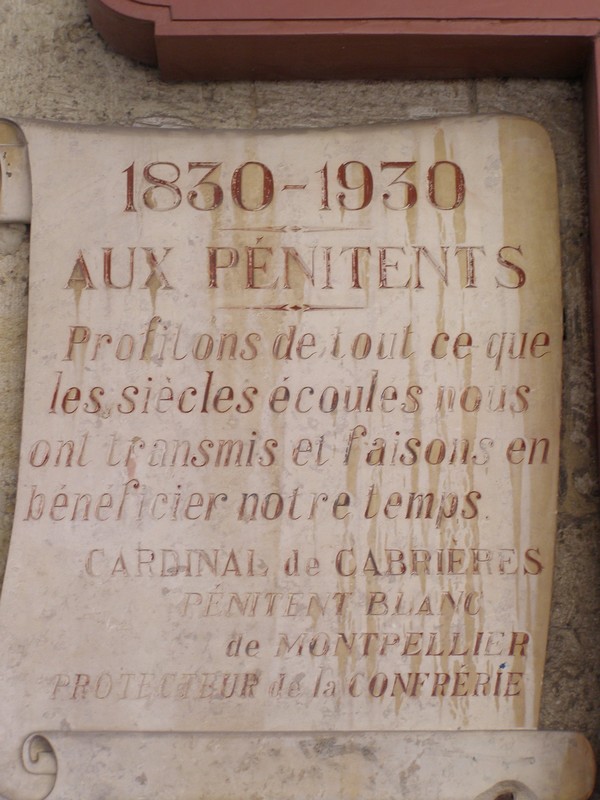 1830-1930
AUX PÉNITENTS
Profitons de tout ce que
les siècles écoules nous
ont transmis et faisons en
bénéficier notre temps.
CARDINAL de CABRIÈRES
PÉNITENT BLANC
de MONTPELLIER
PROTECTEUR de la CONFRÉRIE